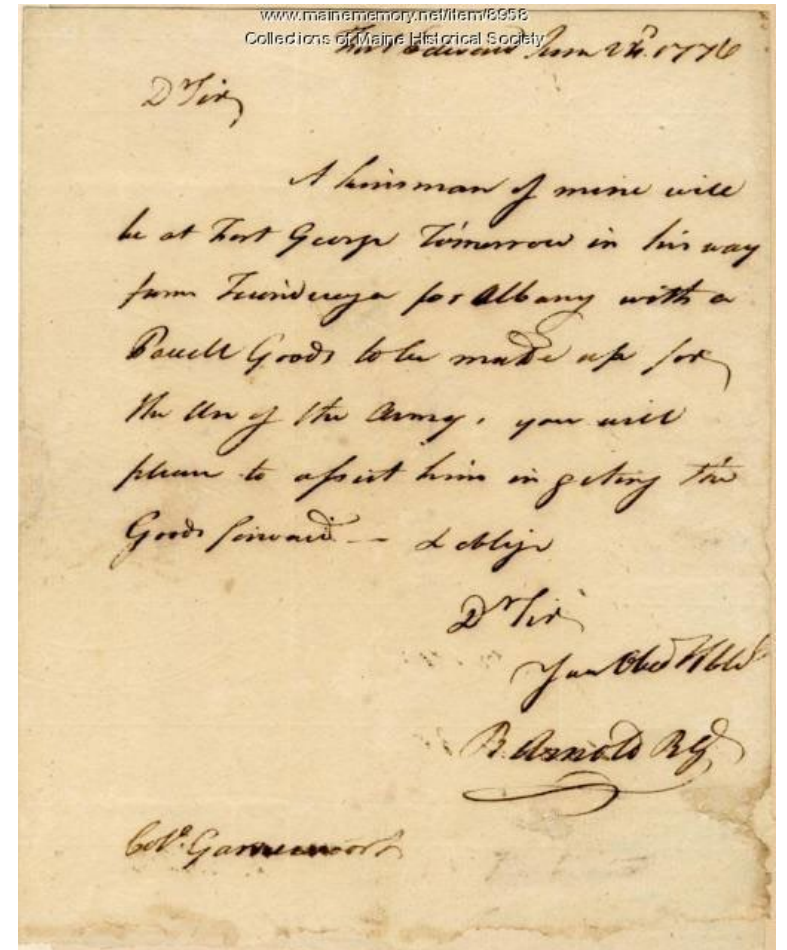 www.mainememory.net/item/8958
Collections of Maine Historical Society
Fort Edward June 24. 1776
Dr Sir
A kinsman of mine will
be at Fort George Tomorrow in his way
from Ticonderoga for Albany with a
Parcell Goods to be made up for
the Use of the Army, you will
please to assist him in geting the
Goods forward — & oblige
Dr Sir
Your Obed Hble
B. Arnold BG
Colo. Gansewoort